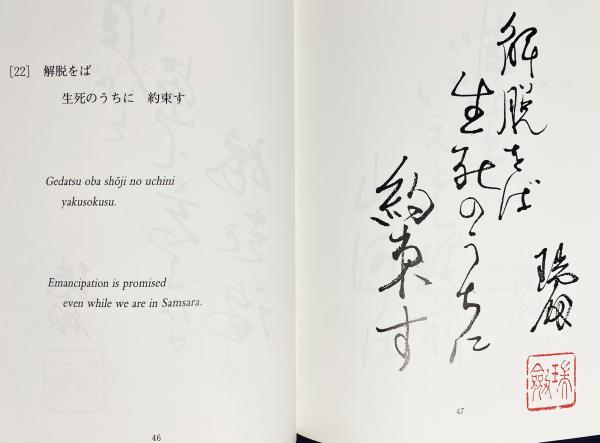 [22] 解脱をば
生死のうちに 約束す
Gedatsu oba shōji no uchini
yakusokusu.
Emancipation is promised
even while we are in Samsara.
46
解脱をば
生死のうちに
約束す
47